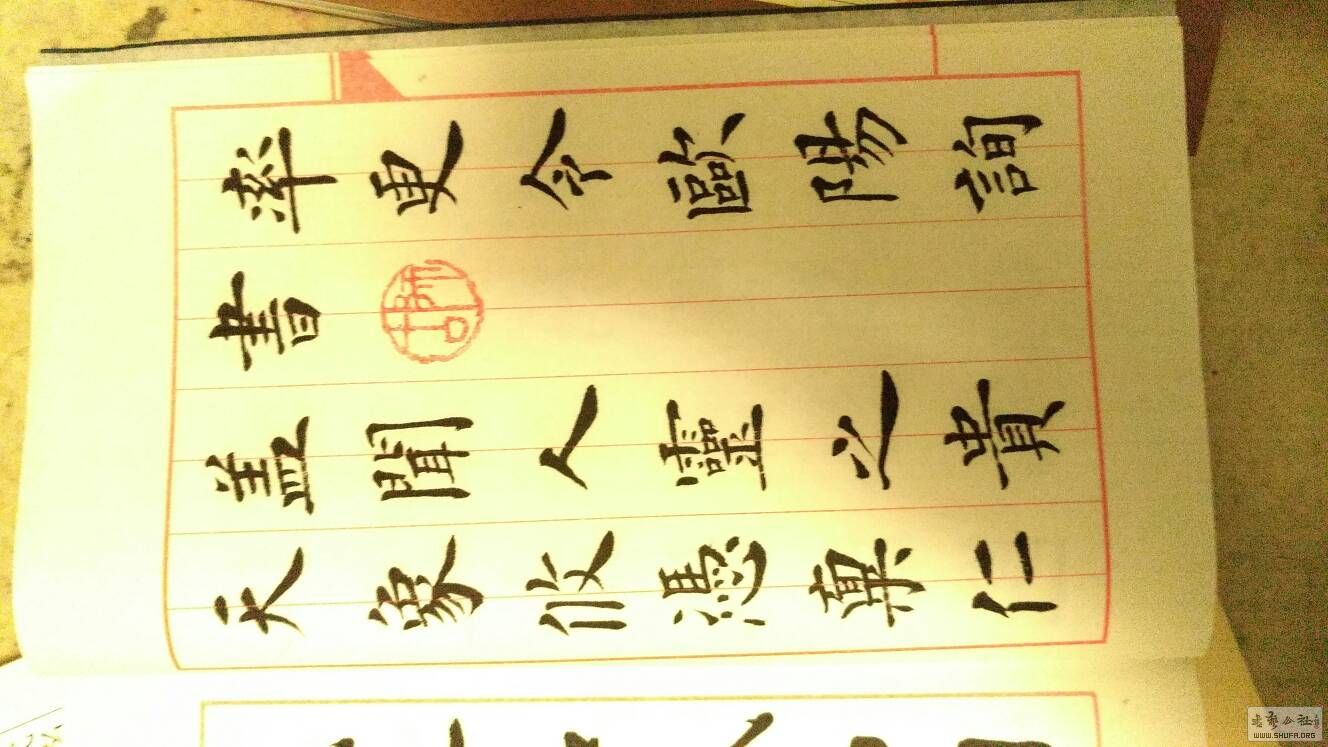 率更令歐陽詢
書
蓋聞人靈之貴
天象攸憑禀仁
书艺公社
WWW.SHUFA.ORG